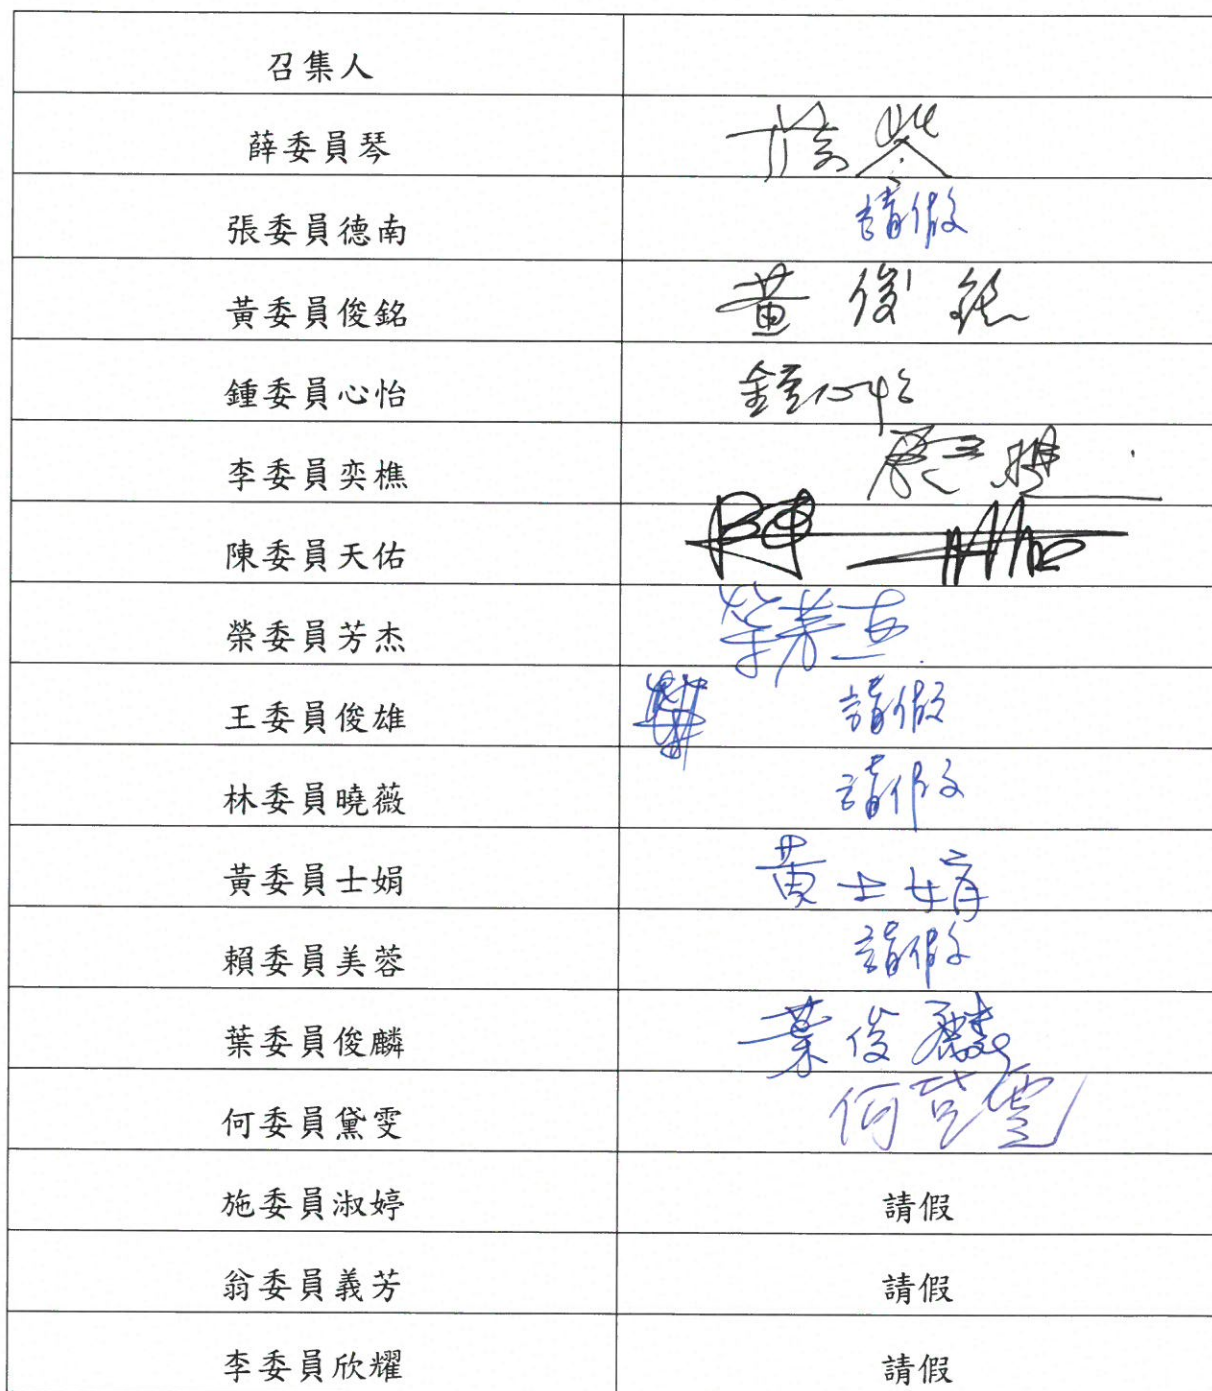 召集人
薛委員琴
張委員德南 請假
黃委員俊銘 黃俊銘
鍾委員心怡 鍾心怡
李委員奕樵
陳委員天佑 陳
榮委員芳杰 榮芳杰
王委員俊雄 請假
林委員曉薇 請假
黃委員士娟 黃士娟
賴委員美蓉 請假
葉委員俊麟 葉俊麟
何委員黛雯 何黛雯
施委員淑婷 請假
翁委員義芳 請假
李委員欣耀 請假